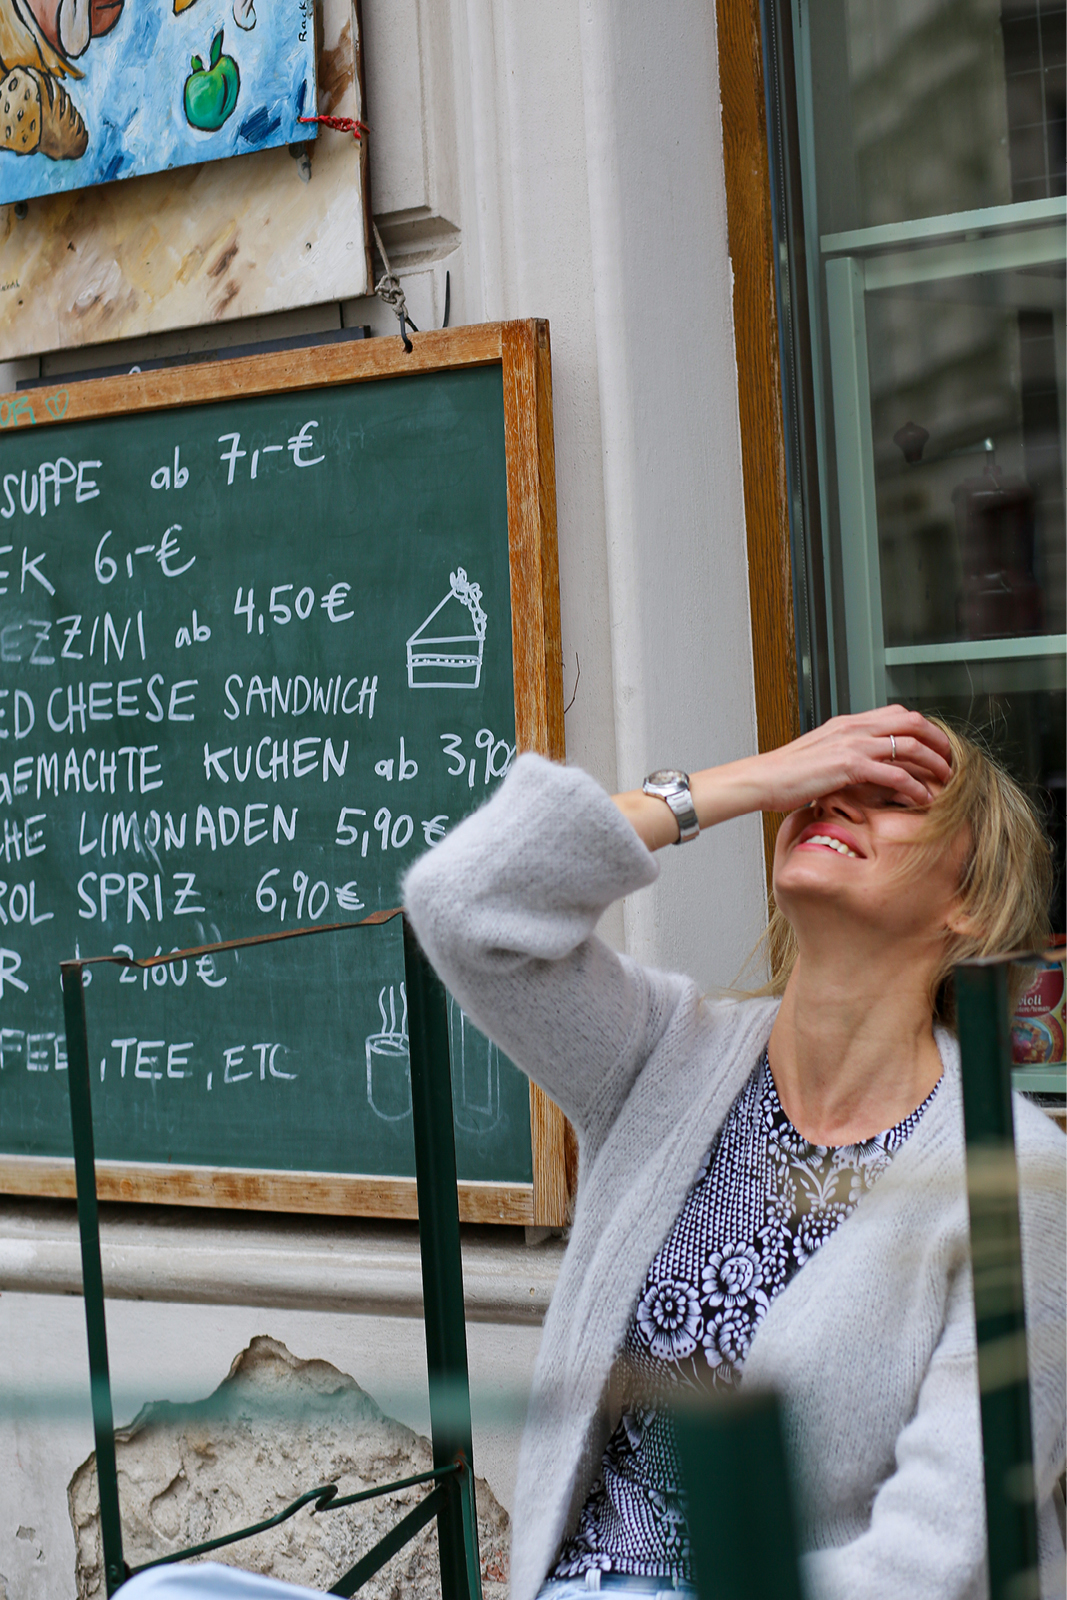 SUPPE ab 7,-€
EK 6,-€
EZZINI ab 4,50€
ED CHEESE SANDWICH
GEMACHTE KUCHEN ab 3,90
CHE LIMONADEN 5,90€
ROL SPRIZ 6,90€
R 2,60€
FFEE, TEE, ETC